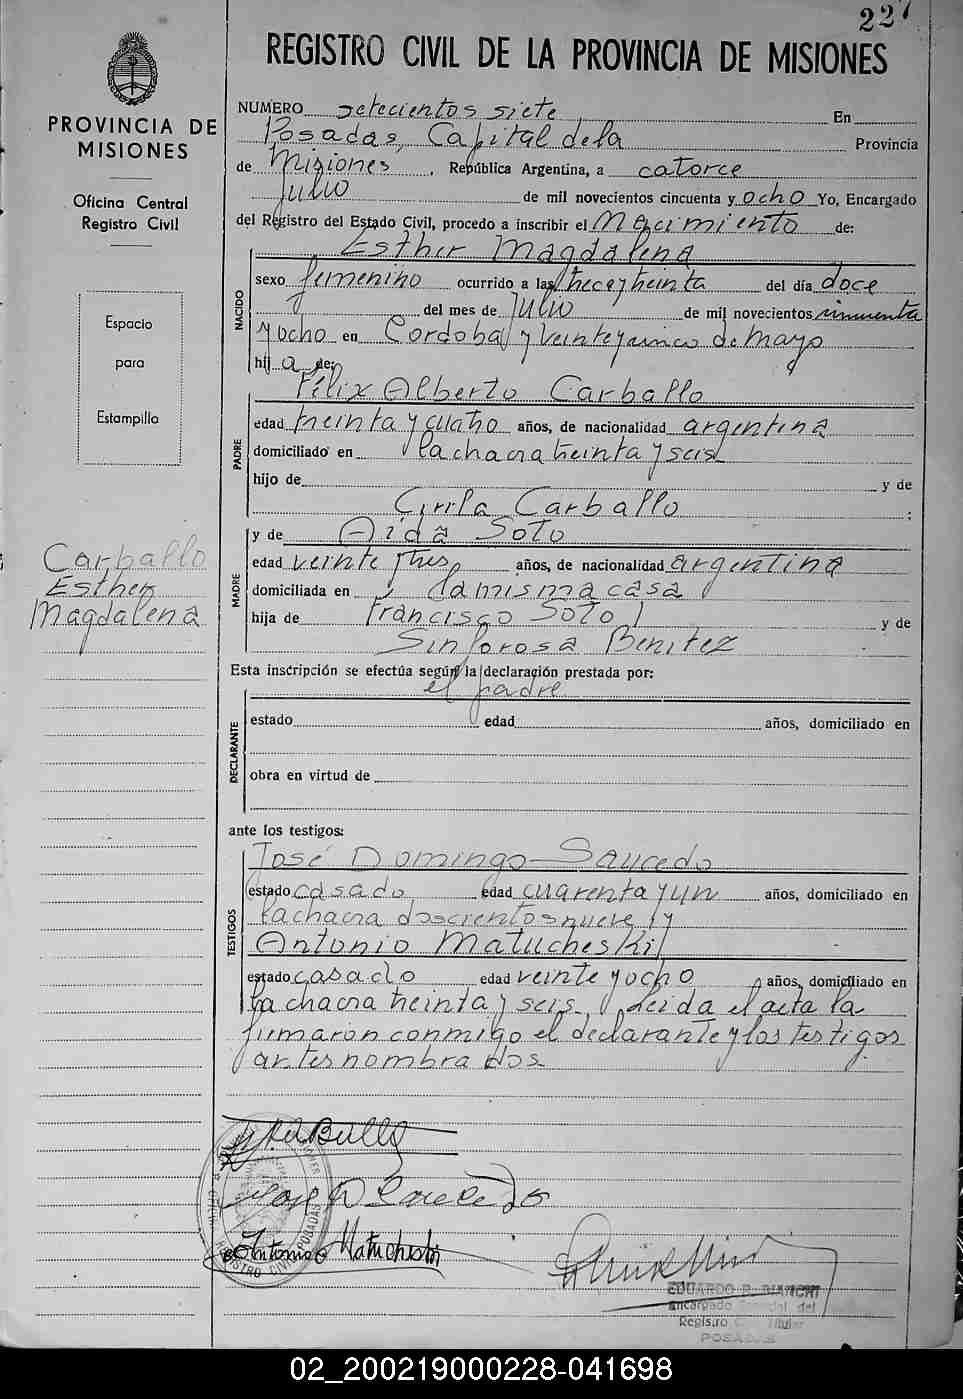 227
REGISTRO CIVIL DE LA PROVINCIA DE MISIONES
PROVINCIA DE
MISIONES
Oficina Central
Registro Civil
Espacio
para
Estampilla
Carballo
Esther
Magdalena
NUMERO setecientos siete En
Posadas, Capital de la Provincia
de Misiones, República Argentina, a catorce
Julio de mil novecientos cincuenta y ocho Yo, Encargado
del Registro del Estado Civil, procedo a inscribir el Nacimiento de:
Esther Magdalena
NACIDO
sexo femenino ocurrido a las trece y treinta del día doce
del mes de Julio de mil novecientos cincuenta
y ocho en Cordoba y veinte y cinco de Mayo
hija de:
Félix Alberto Carballo
PADRE
edad treinta y cuatro años, de nacionalidad argentina
domiciliado en la chacra treinta y seis
hijo de y de
Cirila Carballo :
y de Aida Soto
MADRE
edad veinte y tres años, de nacionalidad argentina
domiciliada en la misma casa
hija de Francisco Soto y de
Sinforosa Benitez
Esta inscripción se efectúa según la declaración prestada por:
el padre
DECLARANTE
estado edad años, domiciliado en
obra en virtud de
ante los testigos:
José Domingo Saucedo
TESTIGOS
estado casado edad cuarenta y un años, domiciliado en
la chacra doscientos nueve y
Antonio Matucheski
estado casado edad veinte y ocho años, domiciliado en
la chacra treinta y seis, Leida el acta la
firmaron conmigo el declarante y los testigos
antes nombrados
Jose D Saucedo
Antonio Matucheski
REGISTRO CIVIL POSADAS
EDUARDO R. BIANCHI
Encargado del
Registro Titular
POSADAS
02_200219000228-041698